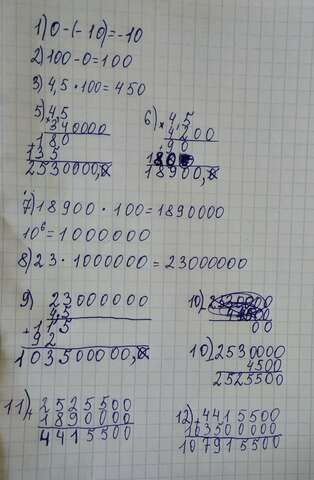 1) 0-(-10)=-10
2) 100-0=100
3) 4,5 · 100=450
5) 4,5
× 340000
180
+135
2530000,0
6) × 4,5
4200
90
180
18900,0
7) 18900 · 100=1890000
10⁶=1000000
8) 23 · 1000000=23000000
9) 23000000
4,5
+115
92
103500000,0
10) 2530000
4500
00
10) -2530000
4500
2525500
11) +2525500
1890000
4415500
12) +4415500
103500000
107915500